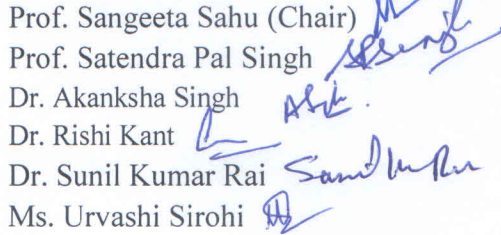 Prof. Sangeeta Sahu (Chair)
Prof. Satendra Pal Singh
Dr. Akanksha Singh
Dr. Rishi Kant
Dr. Sunil Kumar Rai
Ms. Urvashi Sirohi